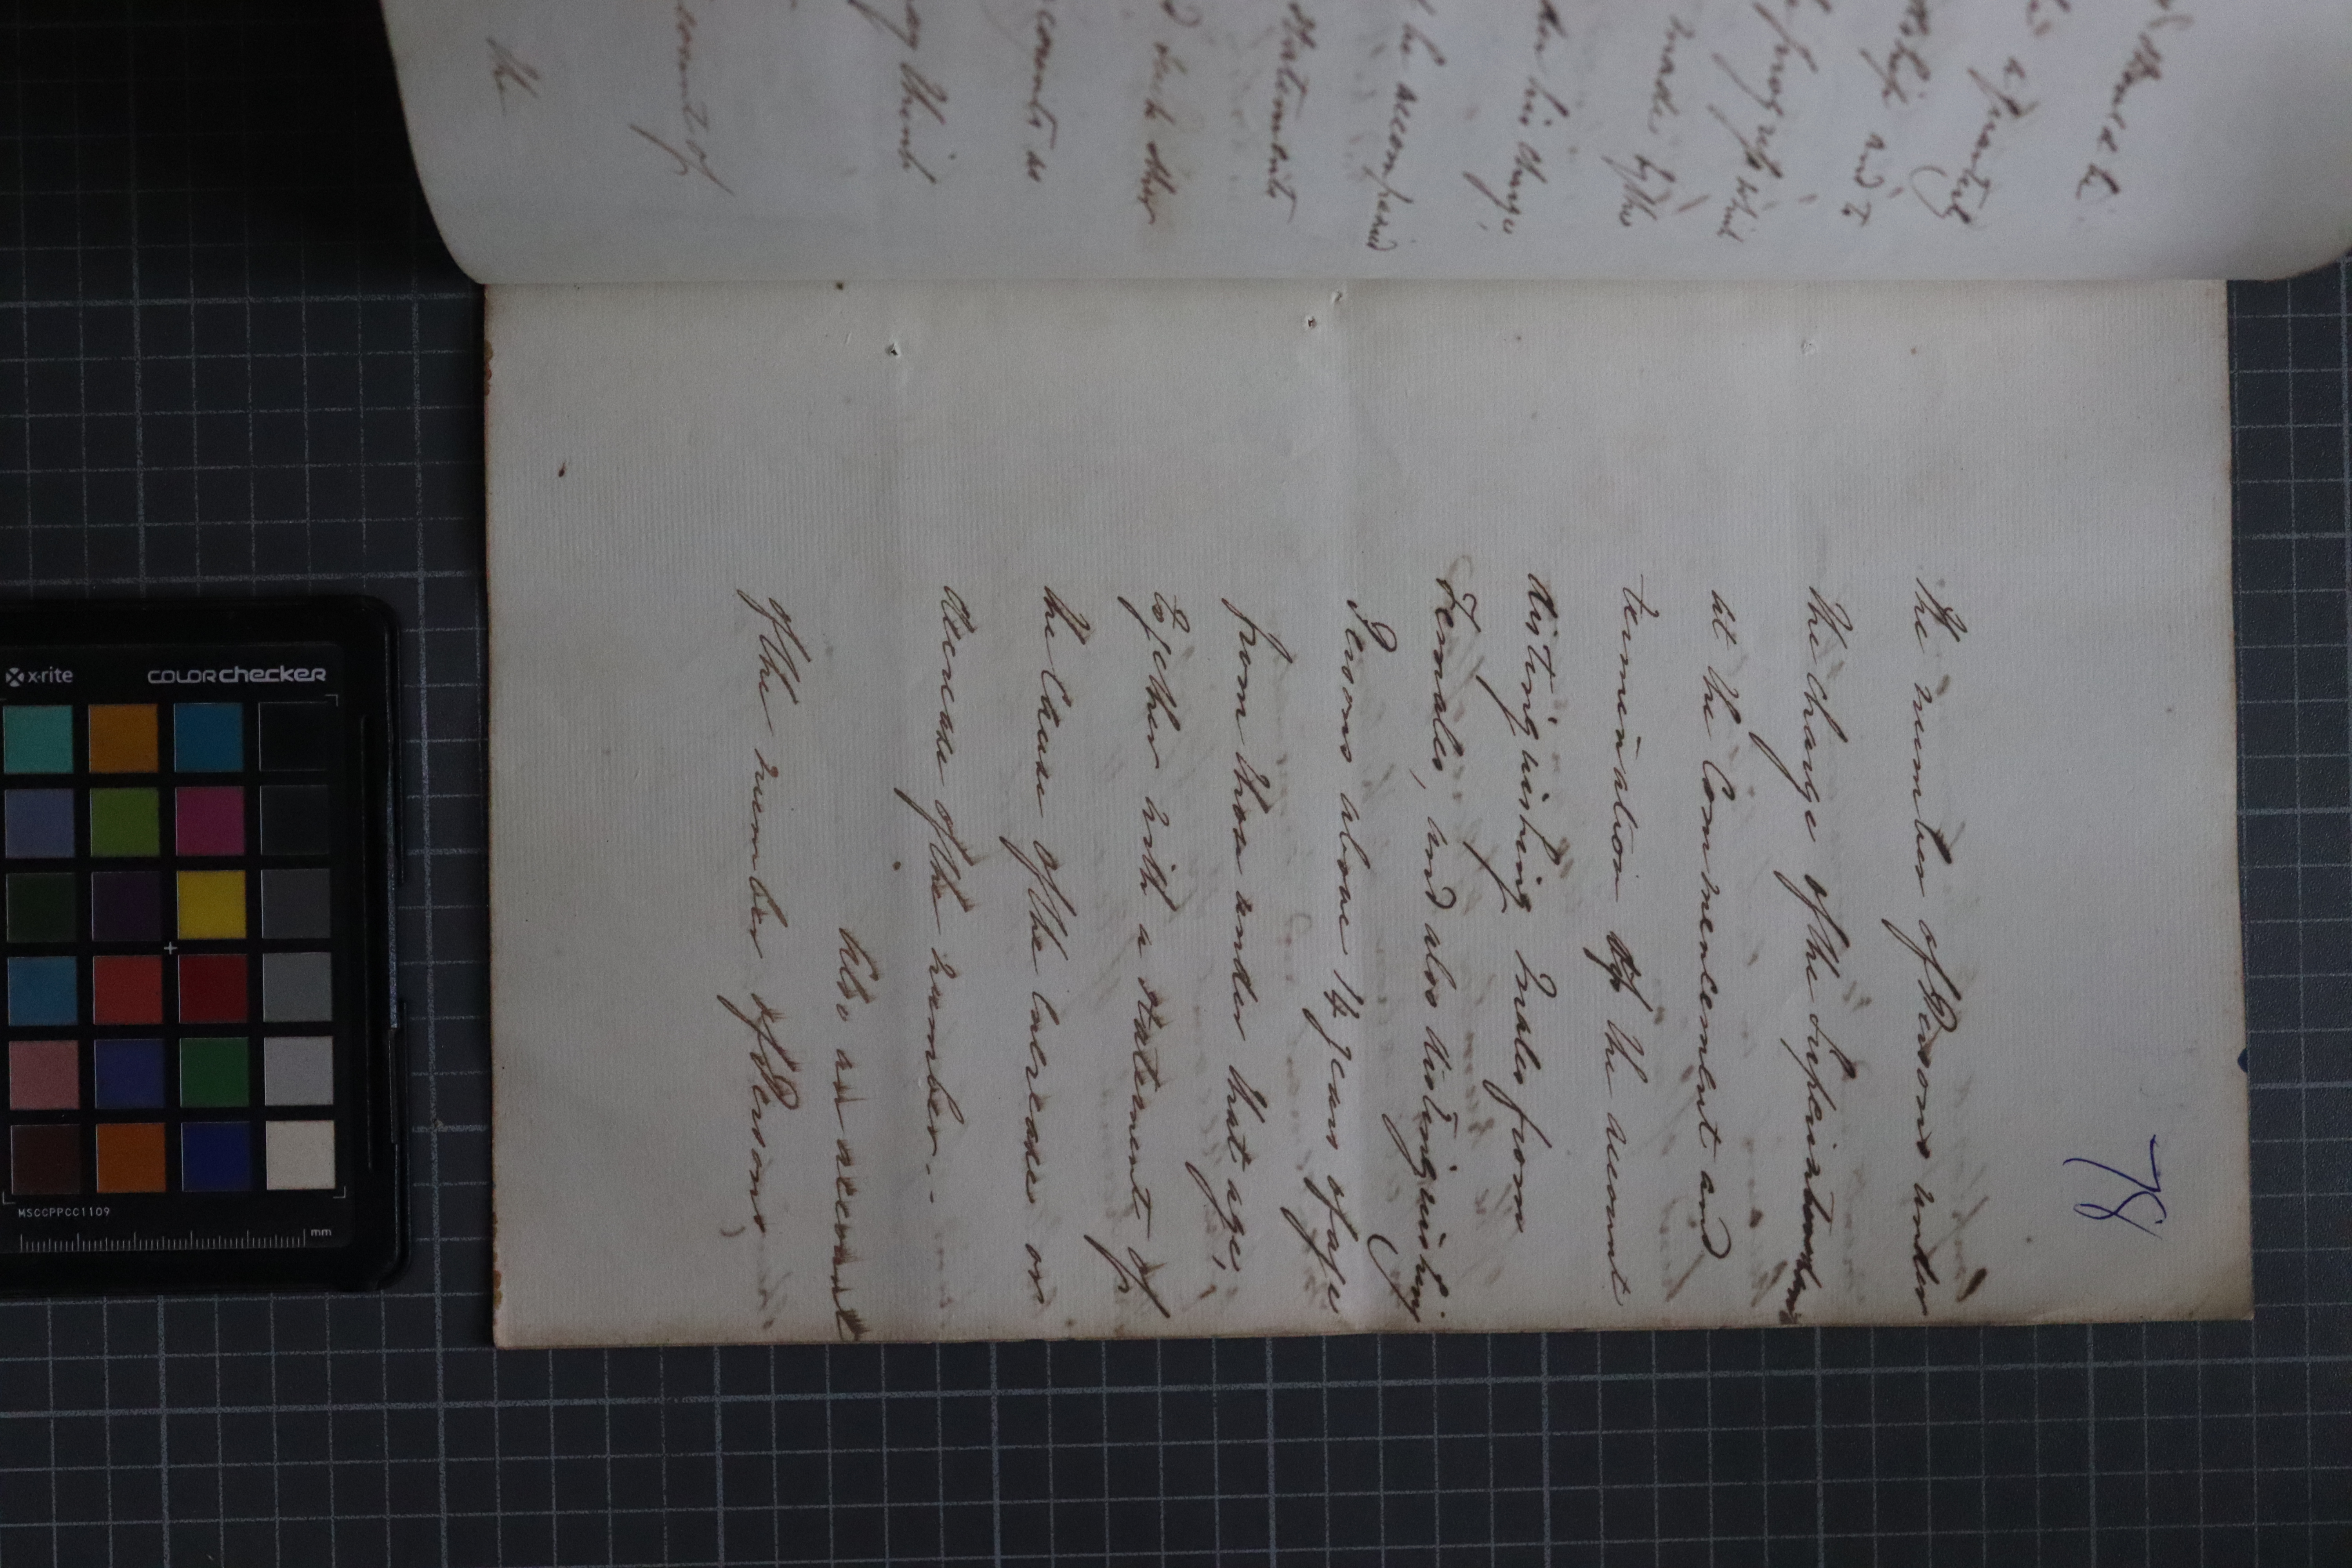 78
the number of Persons under
the charge of the Superintendant
at the Commencement and
termination of the account
distinguishing Males from
Females, and also distinguishing
Persons above 14 years of age
from those under that age,
together with a statement of
the Cause of the increase or
decrease of the number. -
Also an account
of the number of Persons
and
made by this
be accompanied
statements
counts as
may think
count of
the
x·rite
colorchecker
MSCCPPCC1109
mm